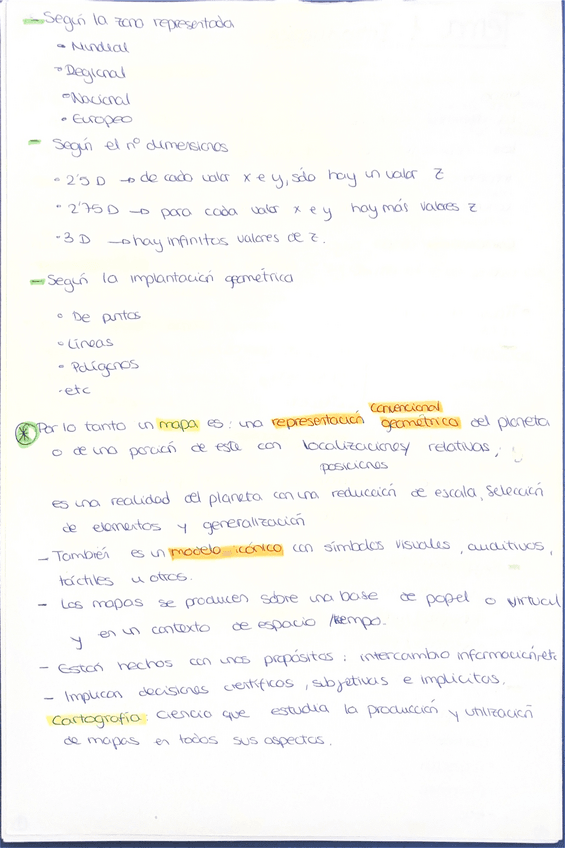 - Según la zona representada
• Mundial
• Regional
• Nacional
• Europeo
- Según el nº dimensiones
• 2'5 D → de cada valor x e y, sólo hay un valor z
• 2'75 D → para cada valor x e y hay más valores z
• 3 D → hay infinitos valores de z.
- Según la implantación geométrica
• De puntos
• Líneas
• Polígonos
- etc
convencional
* Por lo tanto un mapa es: una representación geométrica del planeta
o de una porción de este con localizaciones y relativas;
posiciones
es una realidad del planeta con una reducción de escala, selección
de elementos y generalización
- También es un modelo icónico con símbolos visuales, auditivos,
táctiles u otros.
- Los mapas se producen sobre una base de papel o virtual
y en un contexto de espacio / tiempo.
- Están hechos con unos propósitos: intercambio información, etc
- Implican decisiones científicas, subjetivas e implícitas.
Cartografía: ciencia que estudia la producción y utilización
de mapas en todos sus aspectos.